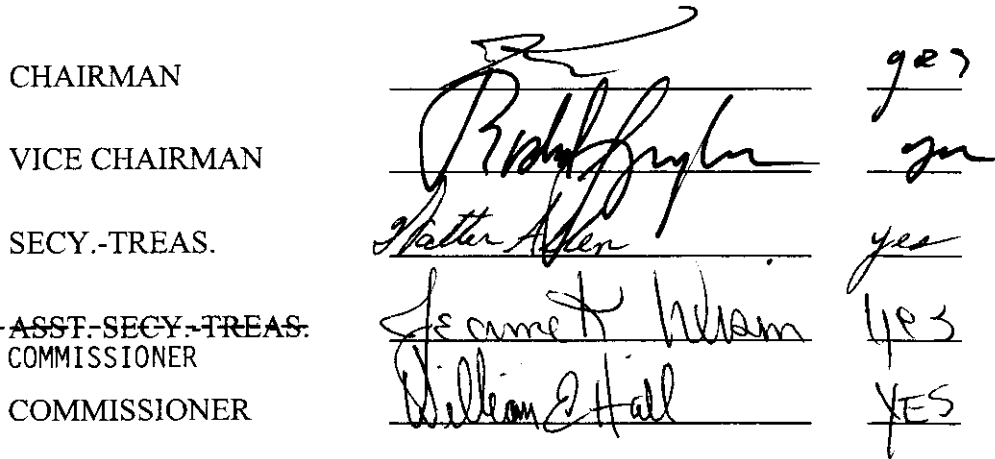 CHAIRMAN yes
VICE CHAIRMAN yes
SECY.-TREAS. Walter yes
ASST. SECY.-TREAS.
COMMISSIONER Jeanne K yes
COMMISSIONER William E Hall YES